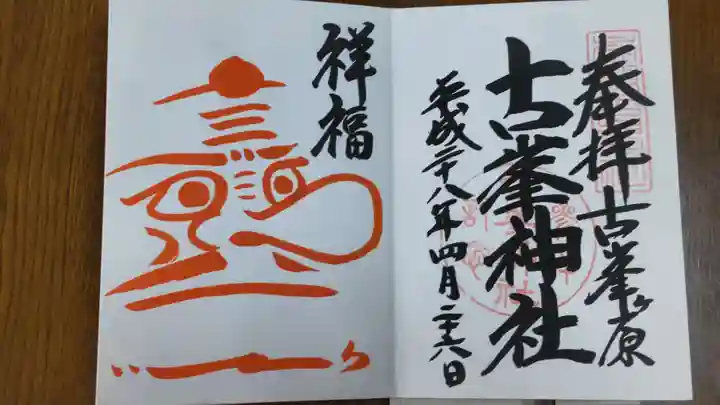 奉拝 古峯ヶ原
古峯神社
平成二十八年四月二十六日
祥福